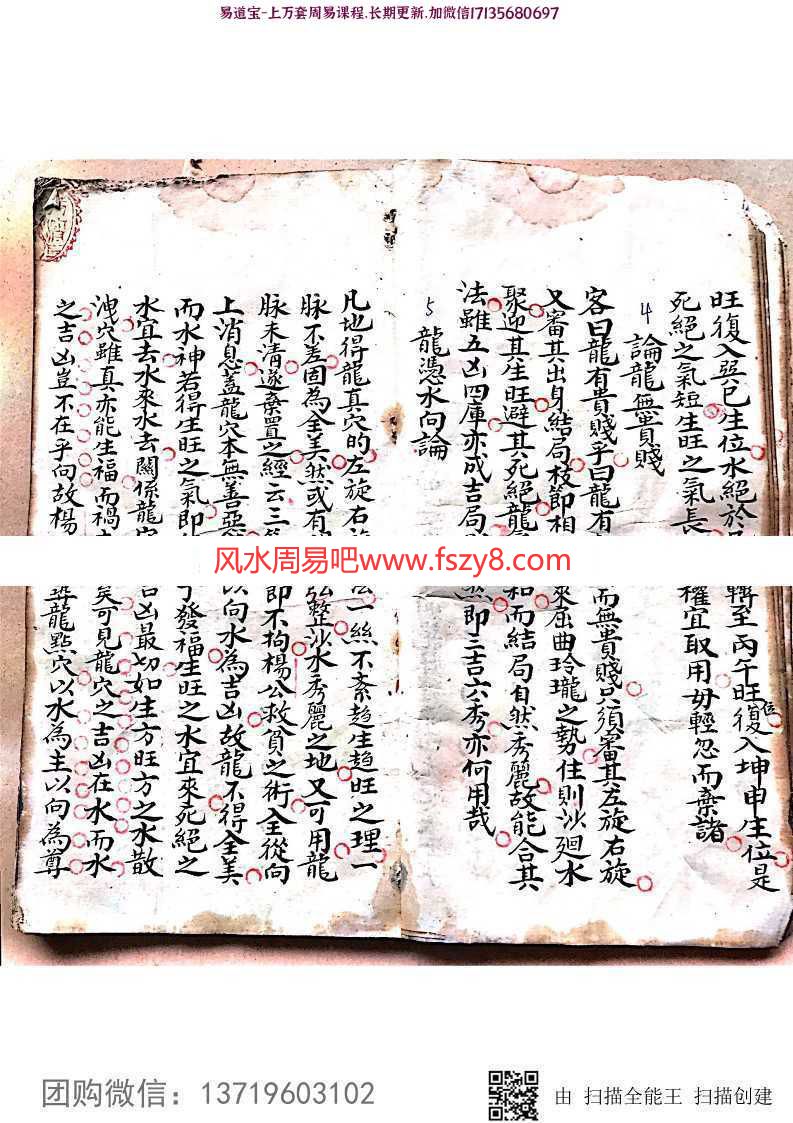 易道宝-上万套周易课程.长期更新.加微信17135680697
旺復入巽巳生位水絕於
轉至丙午旺位復入坤申生位是
死絕之氣短生旺之氣長
權宜取用毋輕忽而棄諸
4 論龍無貴賤
客曰龍有貴賤乎曰龍有
而無貴賤只須審其左旋右旋
又審其出身結局枝節相
來屈曲玲瓏之勢住則沙廻水
聚迎其生旺避其死絕龍
和而結局自然秀麗故能合其
法雖五凶四庫亦成吉局
然即三吉六秀亦何用哉
5 龍憑水向論
凡地得龍真穴的左旋右
法一絲不紊趋生趋旺之理一
脉不差固為全美然或有
弘整沙水秀麗之地又可用龍
脉未清遂棄置之經云三
即不拘楊公救貧之術全從向
上消息蓋龍穴本無善惡
以向水為吉凶故龍不得全美
而水神若得生旺之氣即
于發福生旺之水宜來死絕之
水宜去水來水去關係龍穴
吉凶最切如生方旺方之水散
洩穴雖真亦能生福而禍
矣可見龍穴之吉凶在水而水
之吉凶豈不在乎向故楊
龍點穴以水為主以向為尊
风水周易吧www.fszy8.com
团购微信：13719603102
由 扫描全能王 扫描创建